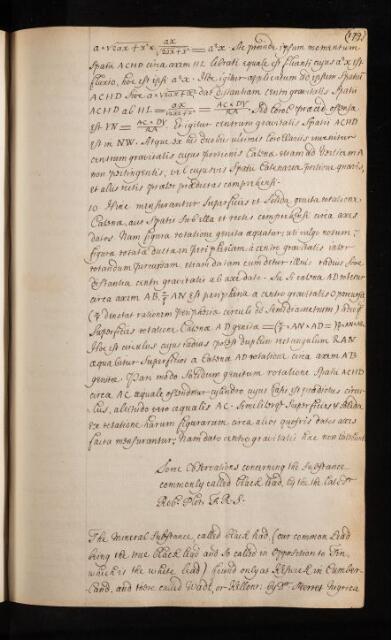 (179)
a × √2ax + x² × ax/√2ax+x² = a²x. Sic proinde ipsum momentum
Spatij ACHD circa axem HL librati equale est fluenti cujus a²x est
fluxio, hoc est ipsi a²x. Hoc igitur applicatum ad ipsum Spatiū
ACHD sive a × √2ax+x² dat distantiam centri gravitatis Spatij
ACHD ab HL = ax/√2ax+x² = AC × DV/RA. Ad Coroll: præced: ostensa
est VN = AC × DV/RA. Ergo igitur centrum gravitatis Spatij ACHD
est in NW. Atque ex his duobus ultimis Corollarijs invenitur
centrum gravitatis cujusvis portionis Catenæ etiam ad Verticem A
non pertingentis, vel cujusvis Spatij Catenarea portione quavis,
et alijs rectis præter prædictas comprehensi.
10. Hinc mensurantur Superficies et Solida genita rotatione
Catenæ, aut Spatij sub illa et rectis comprehensi circa axes
datos. Nam figura rotatione genita æquatur, uti vulgo notum,
figuræ rotatæ ductæ in Peripheriam à centro gravitatis inter
rotandum percursam, etiam datam cum detur illius radius sive
distantia centri gravitatis ab axe dato. Sic si Catena AD rotetur
circa axem AB, AN est peripheria a centro gravitatis percursa
denotat rationem Peripheriæ circuli ad Semidiametrum) adeoq
Superficies rotatione Catenæ AD genita = AN × AD
Hoc est circulus cujus radius potest duplum rectangulum RAN
æquabitur Superficiei a Catena AD rotatione circa axem AB
genitæ. Pari modo Solidum genitum rotatione Spatij ACHD
circa AC æquale ostenditur cylindro cujus basis est prædictus circu-
lus, altitudo vero æqualis AC. Similiterq Superficies et Solida
ex rotatione harum figurarum circa alios quosvis datos axes
facta mensurantur; Nam dato centro gravitatis hæc non latebunt
Some Observations concerning the Substance
commonly called Black lead, by the late Dr
Robt Plot. F.R.S.
The Mineral Substance, called black lead, (our common Lead
being the true black lead and so called in opposition to Tin,
which is the white lead) found only at Keswick in Cumber-
land, and there called Wadt, or Kellow: by Dr Merret Nigrica